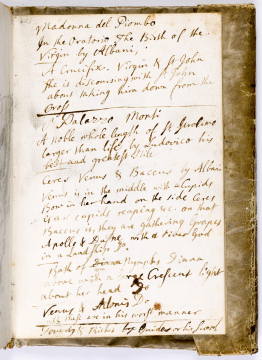 Madonna del Piombo
In the Oratorio The Birth of the
Virgin by Albani,
A Crucifix. Virgin & St John
she is discoursing with St John
about taking him down from the
Cross
Palazzo Monti
A noble whole length of St Jerolamo
larger than life by Ludovico his
best and greatest Stile
Ceres Venus & Baccus by Albani
Venus is in the middle with a Cupids
Bow in her hand on the side Ceres
is a Cupids reaping &c. on that
Baccus is, they are gathering Grapes
Apollo & Dafne with a River God
in a landskip Do
Bath of Diana Nymphs Diana
above with a large Crescent light
about her head Do
Venus & Adonis Do
these are in his worst manner
by Guido or his School